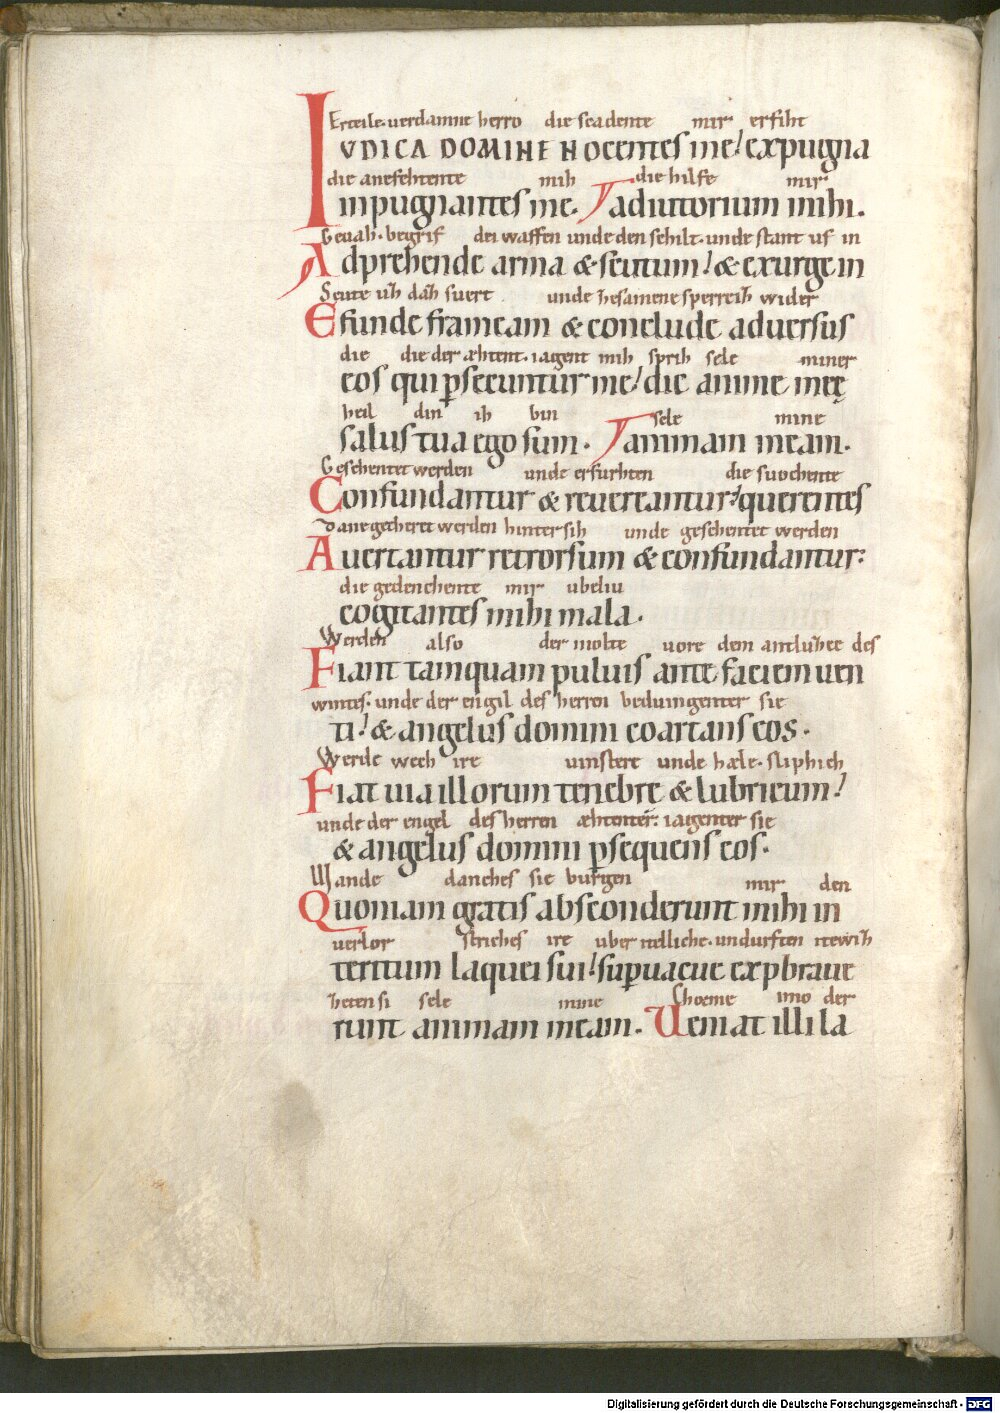 Erteile. uerdamne herro die scadente mir erfiht
IVDICA DOMINE NOcentes me! expugna
die anefehtente mih die hilfe mir
inpugnantes me. adiutorium mihi.
Geuah. begrif dei waffen unde den schilt. unde stant uf in
Adprehende arma & scutum! & exurge in
Scute uh dah suert unde besamene sperreih wider
Efunde frameam & conclude aduersus
die die der æhtent. iagent mih sprih sele miner
eos qui psecuntur me! dic anime meę
heil din ih bin sele mine
salus tua ego sum. animam meam.
Geschentet werden unde erfurhten die suochente
Confundantur & reuereantur! querentes
Dane gecheret werden hintersih unde geschentet werden
Auertantur retrorsum & confundantur:
die gedenchente mir ubeliu
cogitantes mihi mala.
Werden also der molte uore dem antluhee des
Fiant tamquam puluis ante faciem uen
wintes. unde der engil des herren beduuingenter sie
ti! & angelus domini coartans eos.
Werde wech ire uinstere unde hæle. sliphich
Fiat uia illorum tenebre & lubricum!
unde der engel des herren æhtenter: iagenter sie
& angelus domini psequens eos.
Wande danches sie burgen mir den
Quoniam gratis absconderunt mihi in
uerlor striches ire uber itelliche. undurften itewih
teritum laquei sui! supuacue expbraue
heten si sele mine Choeme imo der
runt animam meam. Ueniat illi la
Digitalisierung gefördert durch die Deutsche Forschungsgemeinschaft - DFG